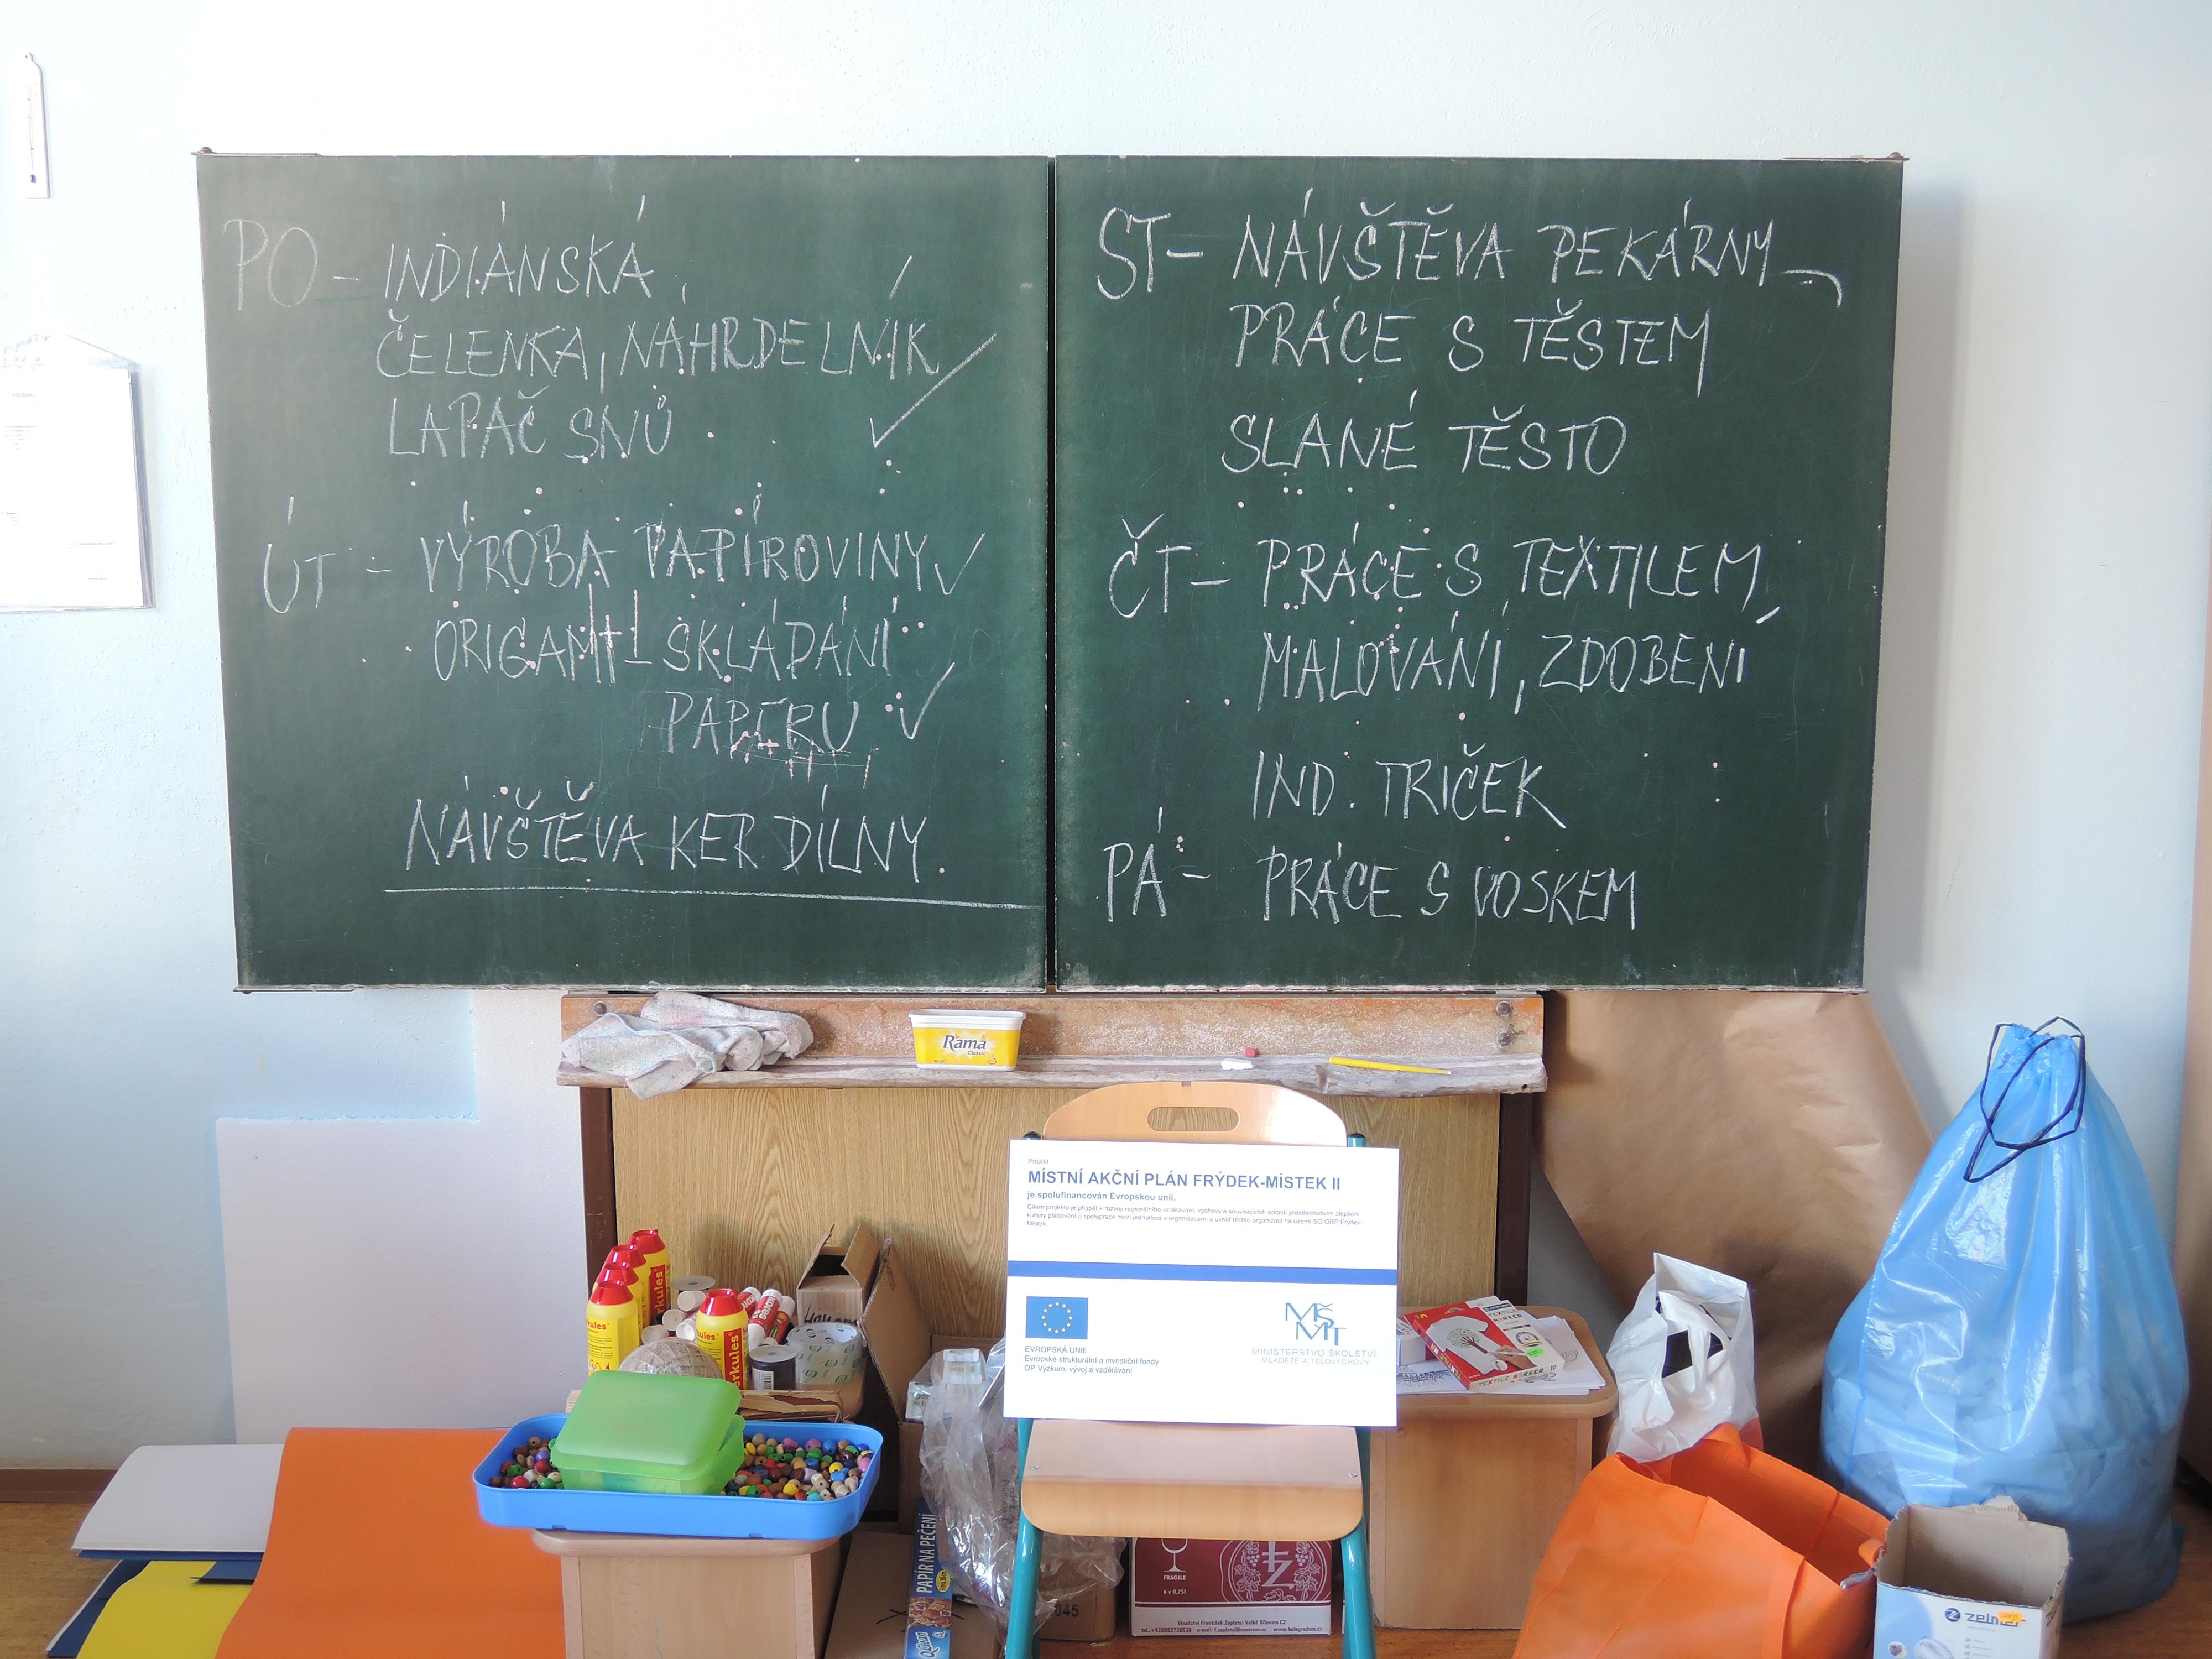 PO - INDIÁNSKÁ
ČELENKA, NÁHRDELNÍK
LAPAČ SNŮ
ÚT - VÝROBA PAPÍROVINY
ORIGAMI - SKLÁDÁNÍ
PAPÍRU
NÁVŠTĚVA KER DÍLNY.
ST - NÁVŠTĚVA PEKÁRNY
PRÁCE S TĚSTEM
SLANÉ TĚSTO
ČT - PRÁCE S TEXTILEM
MALOVÁNÍ, ZDOBENÍ
IND. TRIČEK
PÁ - PRÁCE S VOSKEM
Rama
Classic
Projekt
MÍSTNÍ AKČNÍ PLÁN FRÝDEK-MÍSTEK II
je spolufinancován Evropskou unií.
Cílem projektu je přispět k rozvoji regionálního vzdělávání, výchovy a souvisejících oblastí prostřednictvím zlepšení
kultury plánování a spolupráce mezi jednotlivci a organizacemi a uvnitř těchto organizací na území SO ORP Frýdek-
Místek.
EVROPSKÁ UNIE
Evropské strukturální a investiční fondy
OP Výzkum, vývoj a vzdělávání
MŠMT
MINISTERSTVO ŠKOLSTVÍ,
MLÁDEŽE A TĚLOVÝCHOVY
erkules
kules
erkules
kores
TEXTILE MARKER
PAPÍR NA PEČENÍ
FRAGILE
6 x 0,75l
045
Vinařství František Zapletal Velké Bílovice CZ
tel.:+420602736536 e-mail: f.zapletal@centrum.cz
zelmer